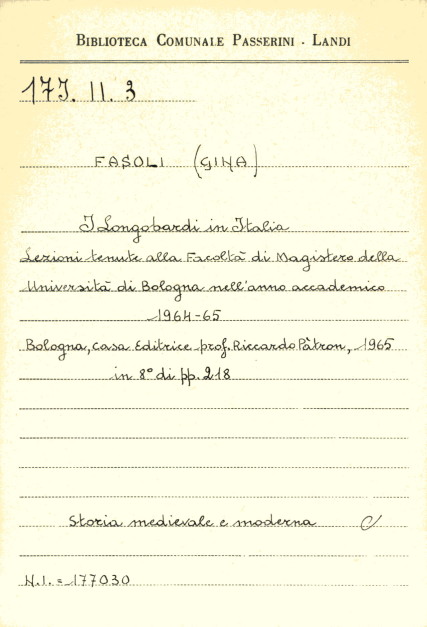 BIBLIOTECA COMUNALE PASSERINI - LANDI
17J. II. 3
FASOLI (GINA)
I Longobardi in Italia
Lezioni tenute alla Facoltà di Magistero della
Università di Bologna nell'anno accademico
1964-65
Bologna, Casa Editrice prof. Riccardo Pàtron, 1965
in 8° di pp. 218
Storia medievale e moderna
N.I. = 177030